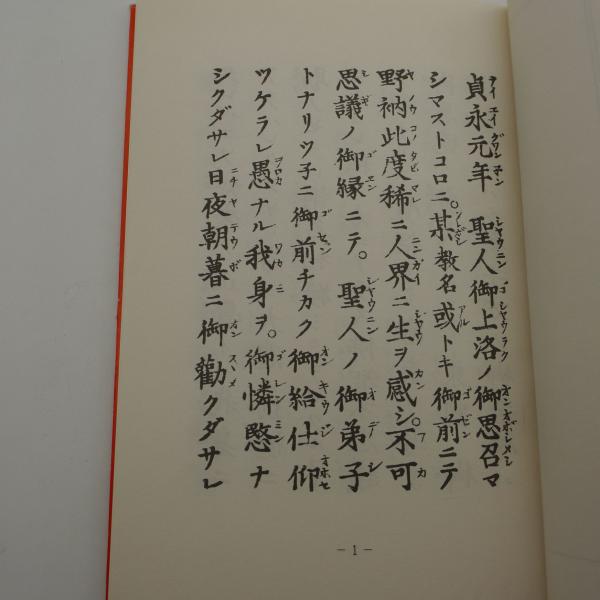 貞永元年　聖人御上洛ノ御思召マ
シマストコロニ。某教名或トキ御前ニテ
野衲此度稀ニ人界ニ生ヲ感シ。不可
思議ノ御縁ニテ。聖人ノ御弟子
トナリツ子ニ御前チカク御給仕仰
ツケラレ愚ナル我身ヲ。御憐愍ナ
シクダサレ日夜朝暮ニ御勸クダサレ
－1－